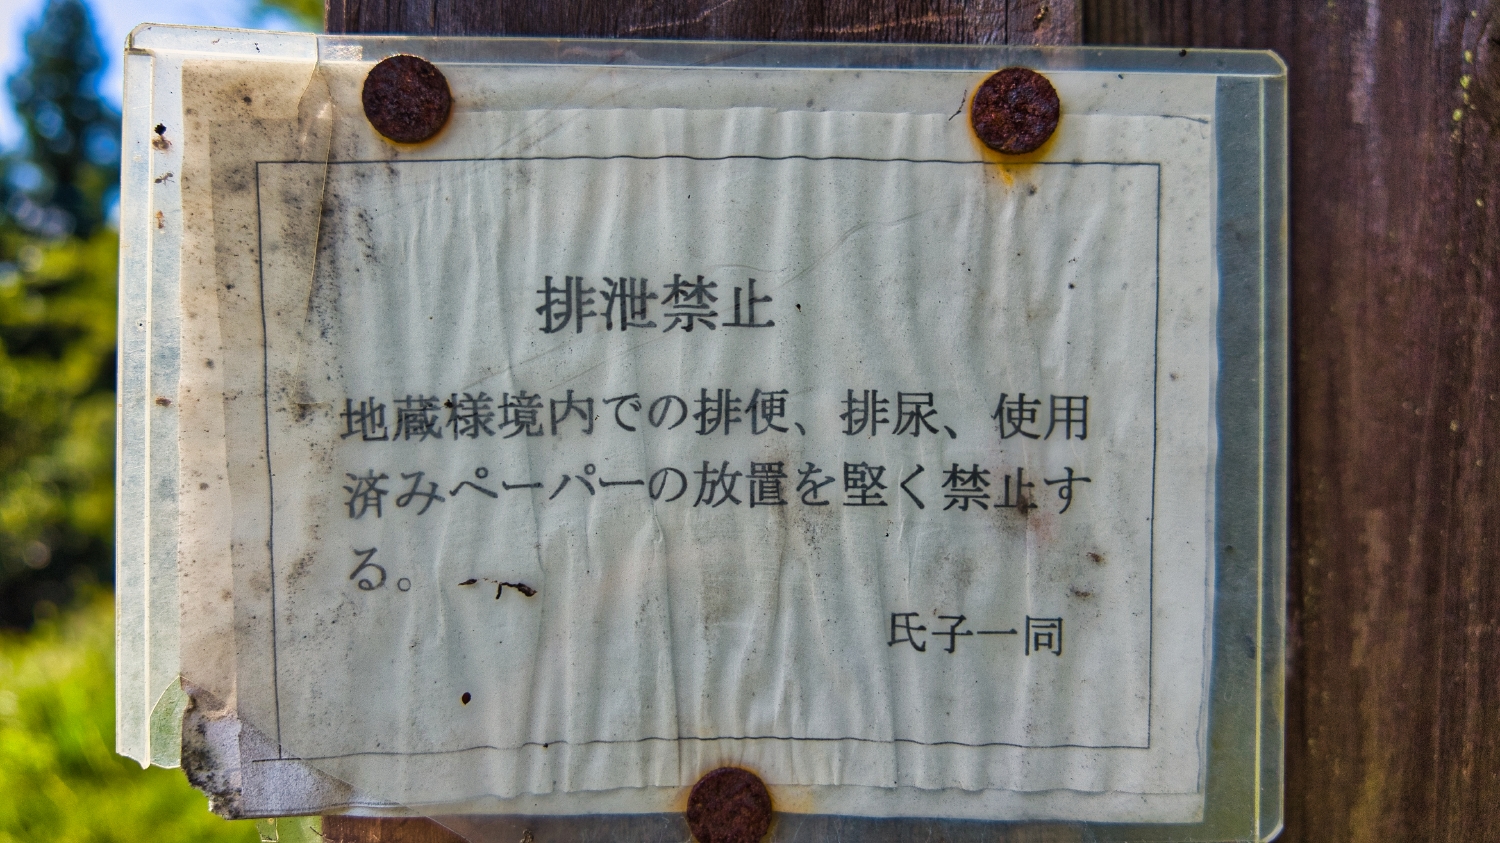 排泄禁止
地蔵様境内での排便、排尿、使用
済みペーパーの放置を堅く禁止す
る。
氏子一同